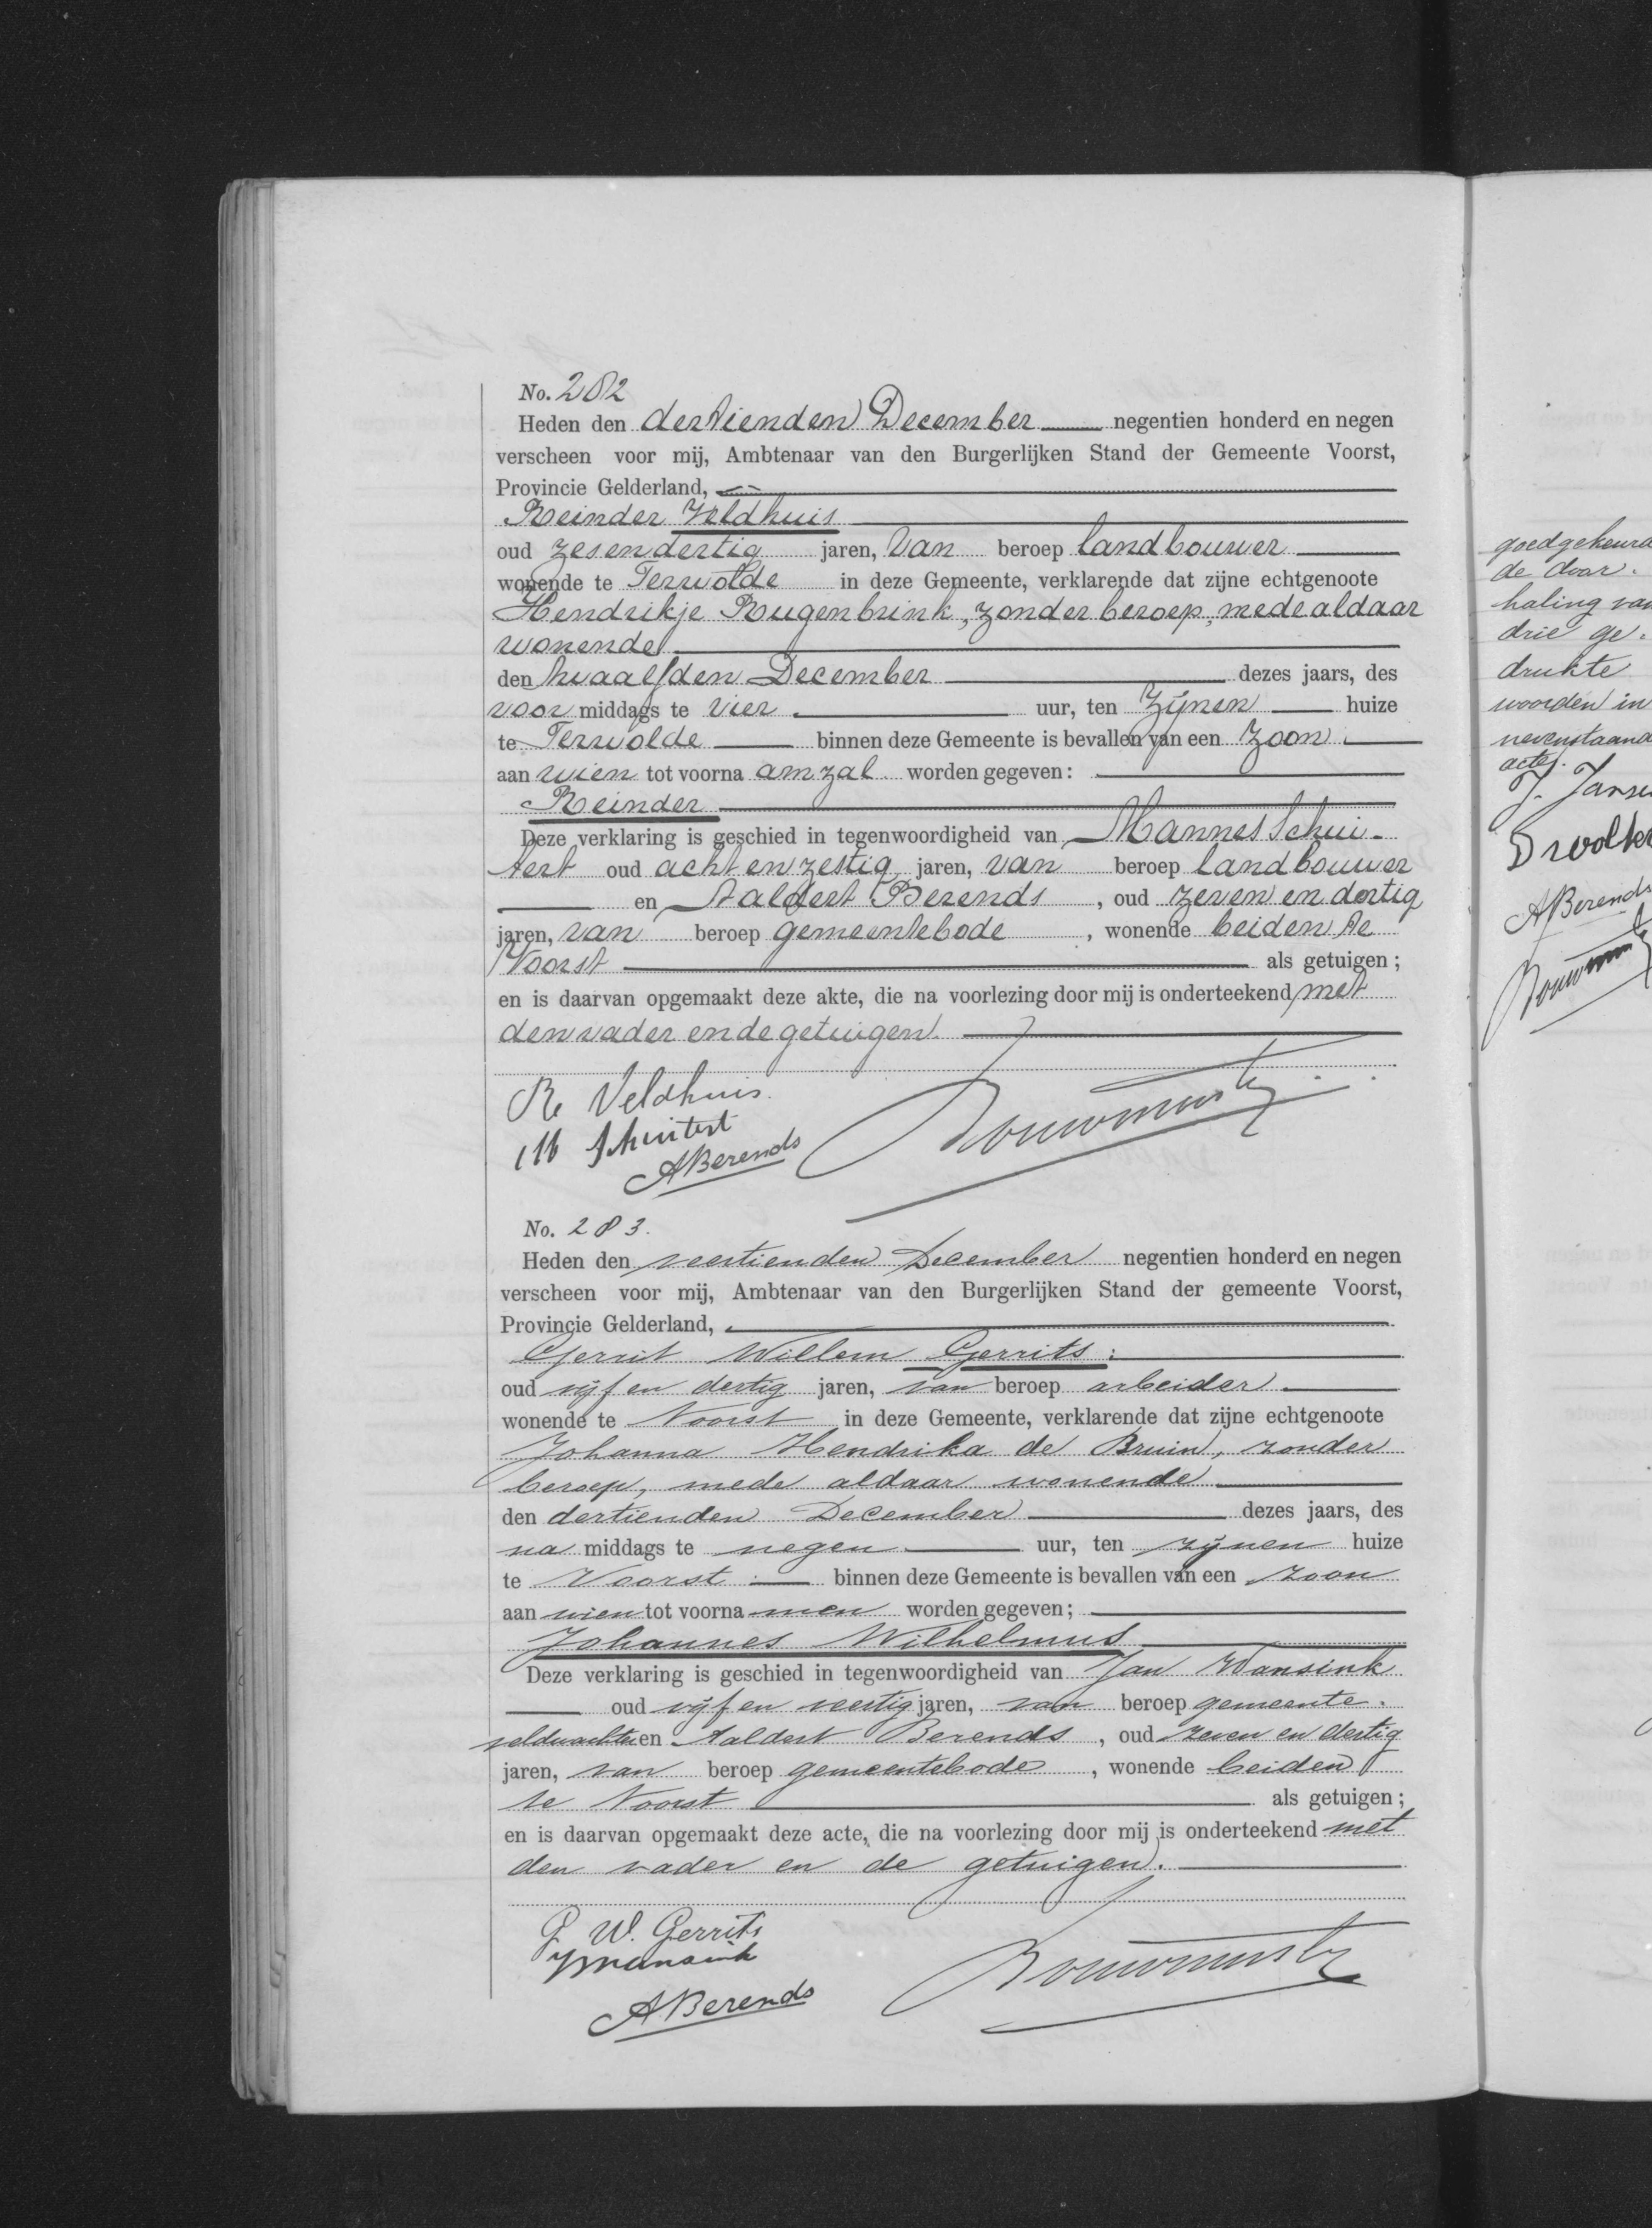 No. 282
Heden den dertienden December negentien honderd en negen
verscheen voor mij, Ambtenaar van den Burgerlijken Stand der Gemeente Voorst,
Provincie Gelderland,
Reinder Veldhuis
oud zesendertig jaren, van beroep landbouwer
wonende te Terwolde in deze Gemeente, verklarende dat zijne echtgenoote
Hendrikje Rougenbrink, zonder beroep, mede aldaar
wonende
den twaalfden December dezes jaars, des
voor middags te vier uur, ten zijnen huize
te Terwolde binnen deze Gemeente is bevallen van een zoon
aan wien tot voorna am zal worden gegeven:
Reinder
Deze verklaring is geschied in tegenwoordigheid van Mannes Schui-
tert oud acht en zestig jaren, van beroep landbouwer
en Aaldert Berends, oud zeven en dertig
jaren, van beroep gemeentebode, wonende beiden te
Voorst als getuigen;
en is daarvan opgemaakt deze akte, die na voorlezing door mij is onderteekend met
den vader en de getuigen.
R. Veldhuis
M Schuitert
ABerends
No. 283.
Heden den veertienden December negentien honderd en negen
verscheen voor mij, Ambtenaar van den Burgerlijken Stand der gemeente Voorst,
Provincie Gelderland,
Gerrit Willem Gerrits:
oud vijf en dertig jaren, van beroep arbeider
wonende te Voorst in deze Gemeente, verklarende dat zijne echtgenoote
Johanna Hendrika de Bruin, zonder
beroep, mede aldaar wonende
den dertienden December dezes jaars, des
na middags te negen uur, ten zijnen huize
te Voorst binnen deze Gemeente is bevallen van een zoon
aan wien tot voorna men worden gegeven;
Johannes Wilhelmus
Deze verklaring is geschied in tegenwoordigheid van Jan Wansink
oud vijf en veertig jaren, van beroep gemeente-
veldwachter en Aaldert Berends, oud zeven en dertig
jaren, van beroep gemeentebode, wonende beiden
te Voorst als getuigen;
en is daarvan opgemaakt deze acte, die na voorlezing door mij is onderteekend met
den vader en de getuigen.
G W. Gerrits
JWansink
ABerends
goedgekeurd
de door-
haling van
drie ge-
drukte
woorden in
nevenstaande
acte.
J. Janse
D wolter
ABerends